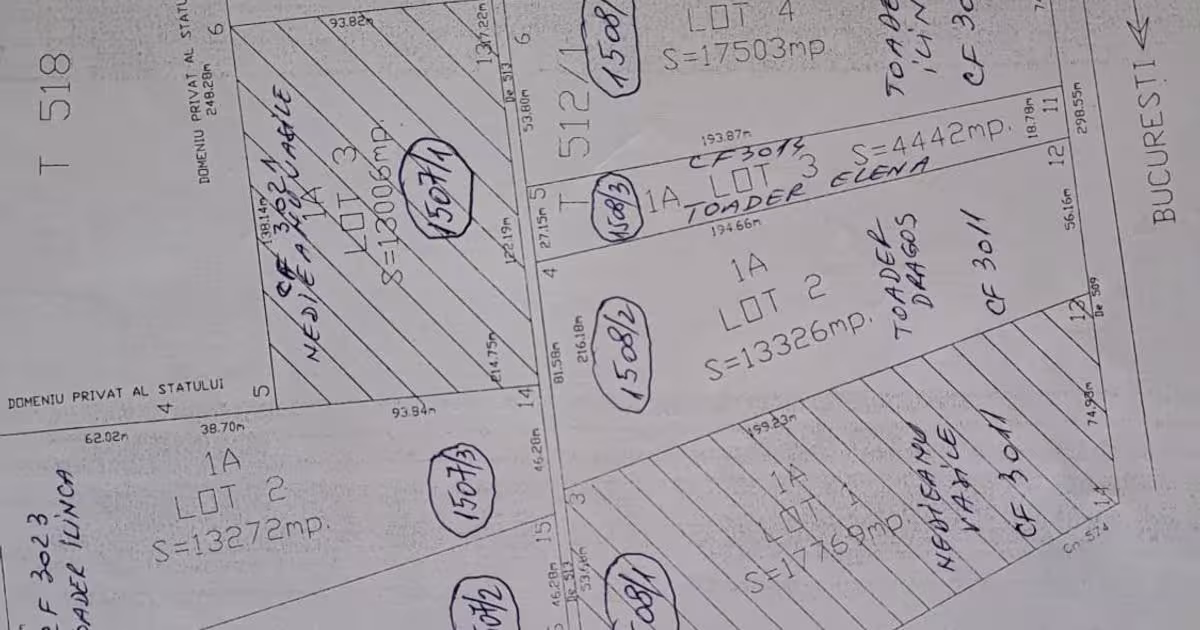 T 518
DOMENIU PRIVAT AL STATU
248.28m
6
93.82m
138.14m
CF 3021
NEDIEANU VASILE
1A
LOT 3
S=13006mp.
1507/1
122.19m
214.75m
93.94m
5
14
DOMENIU PRIVAT AL STATULUI
4
62.02m
38.70m
1A
LOT 2
S=13272mp.
1507/3
46.28m
15
F 3023
OADER ILINCA
46.28m
De 513
53.66m
507/2
17.22m
De 513
6
53.80m
T 512/1
1508/
LOT 4
S=17503mp.
TOADE
CF 30
193.87m
CF 3014
5
27.15m
4
1508/3
1A
LOT 3
S=4442mp.
TOADER ELENA
194.66m
18.78m
11
298.55m
12
BUCUREȘTI
1A
LOT 2
S=13326mp.
1508/2
81.58m
216.18m
TOADER
DRAGOS
CF 3011
56.16m
13
De 509
3
199.23m
1A
LOT 1
S=17769mp.
508/1
NEDIEANU
VASILE
CF 3011
74.98m
14